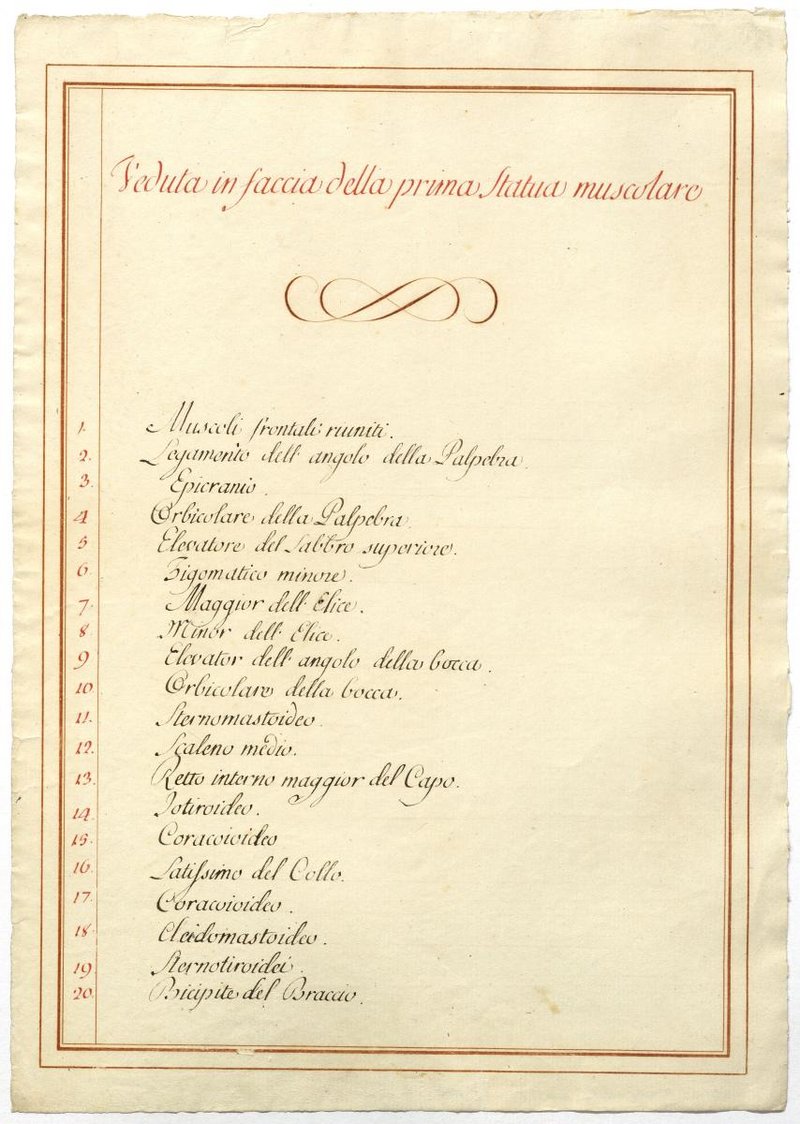 Veduta in faccia della prima Statua muscolare
1. Muscoli frontali riuniti.
2. Legamento dell' angolo della Palpebra.
3. Epicranio.
4 Orbicolare della Palpebra.
5 Elevatore del Labbro superiore.
6. Zigomatico minore.
7. Maggior dell' Elice.
8 Minor dell' Elice.
9 Elevator dell' angolo della bocca.
10 Orbicolare della bocca.
11. Sternomastoideo.
12. Scaleno medio.
13. Retto interno maggior del Capo.
14 Iotiroideo.
15. Coracoioideo
16. Latissimo del Collo.
17. Coracoioideo.
18. Cleidomastoideo.
19 Sternotiroidei.
20. Bicipite del Braccio.